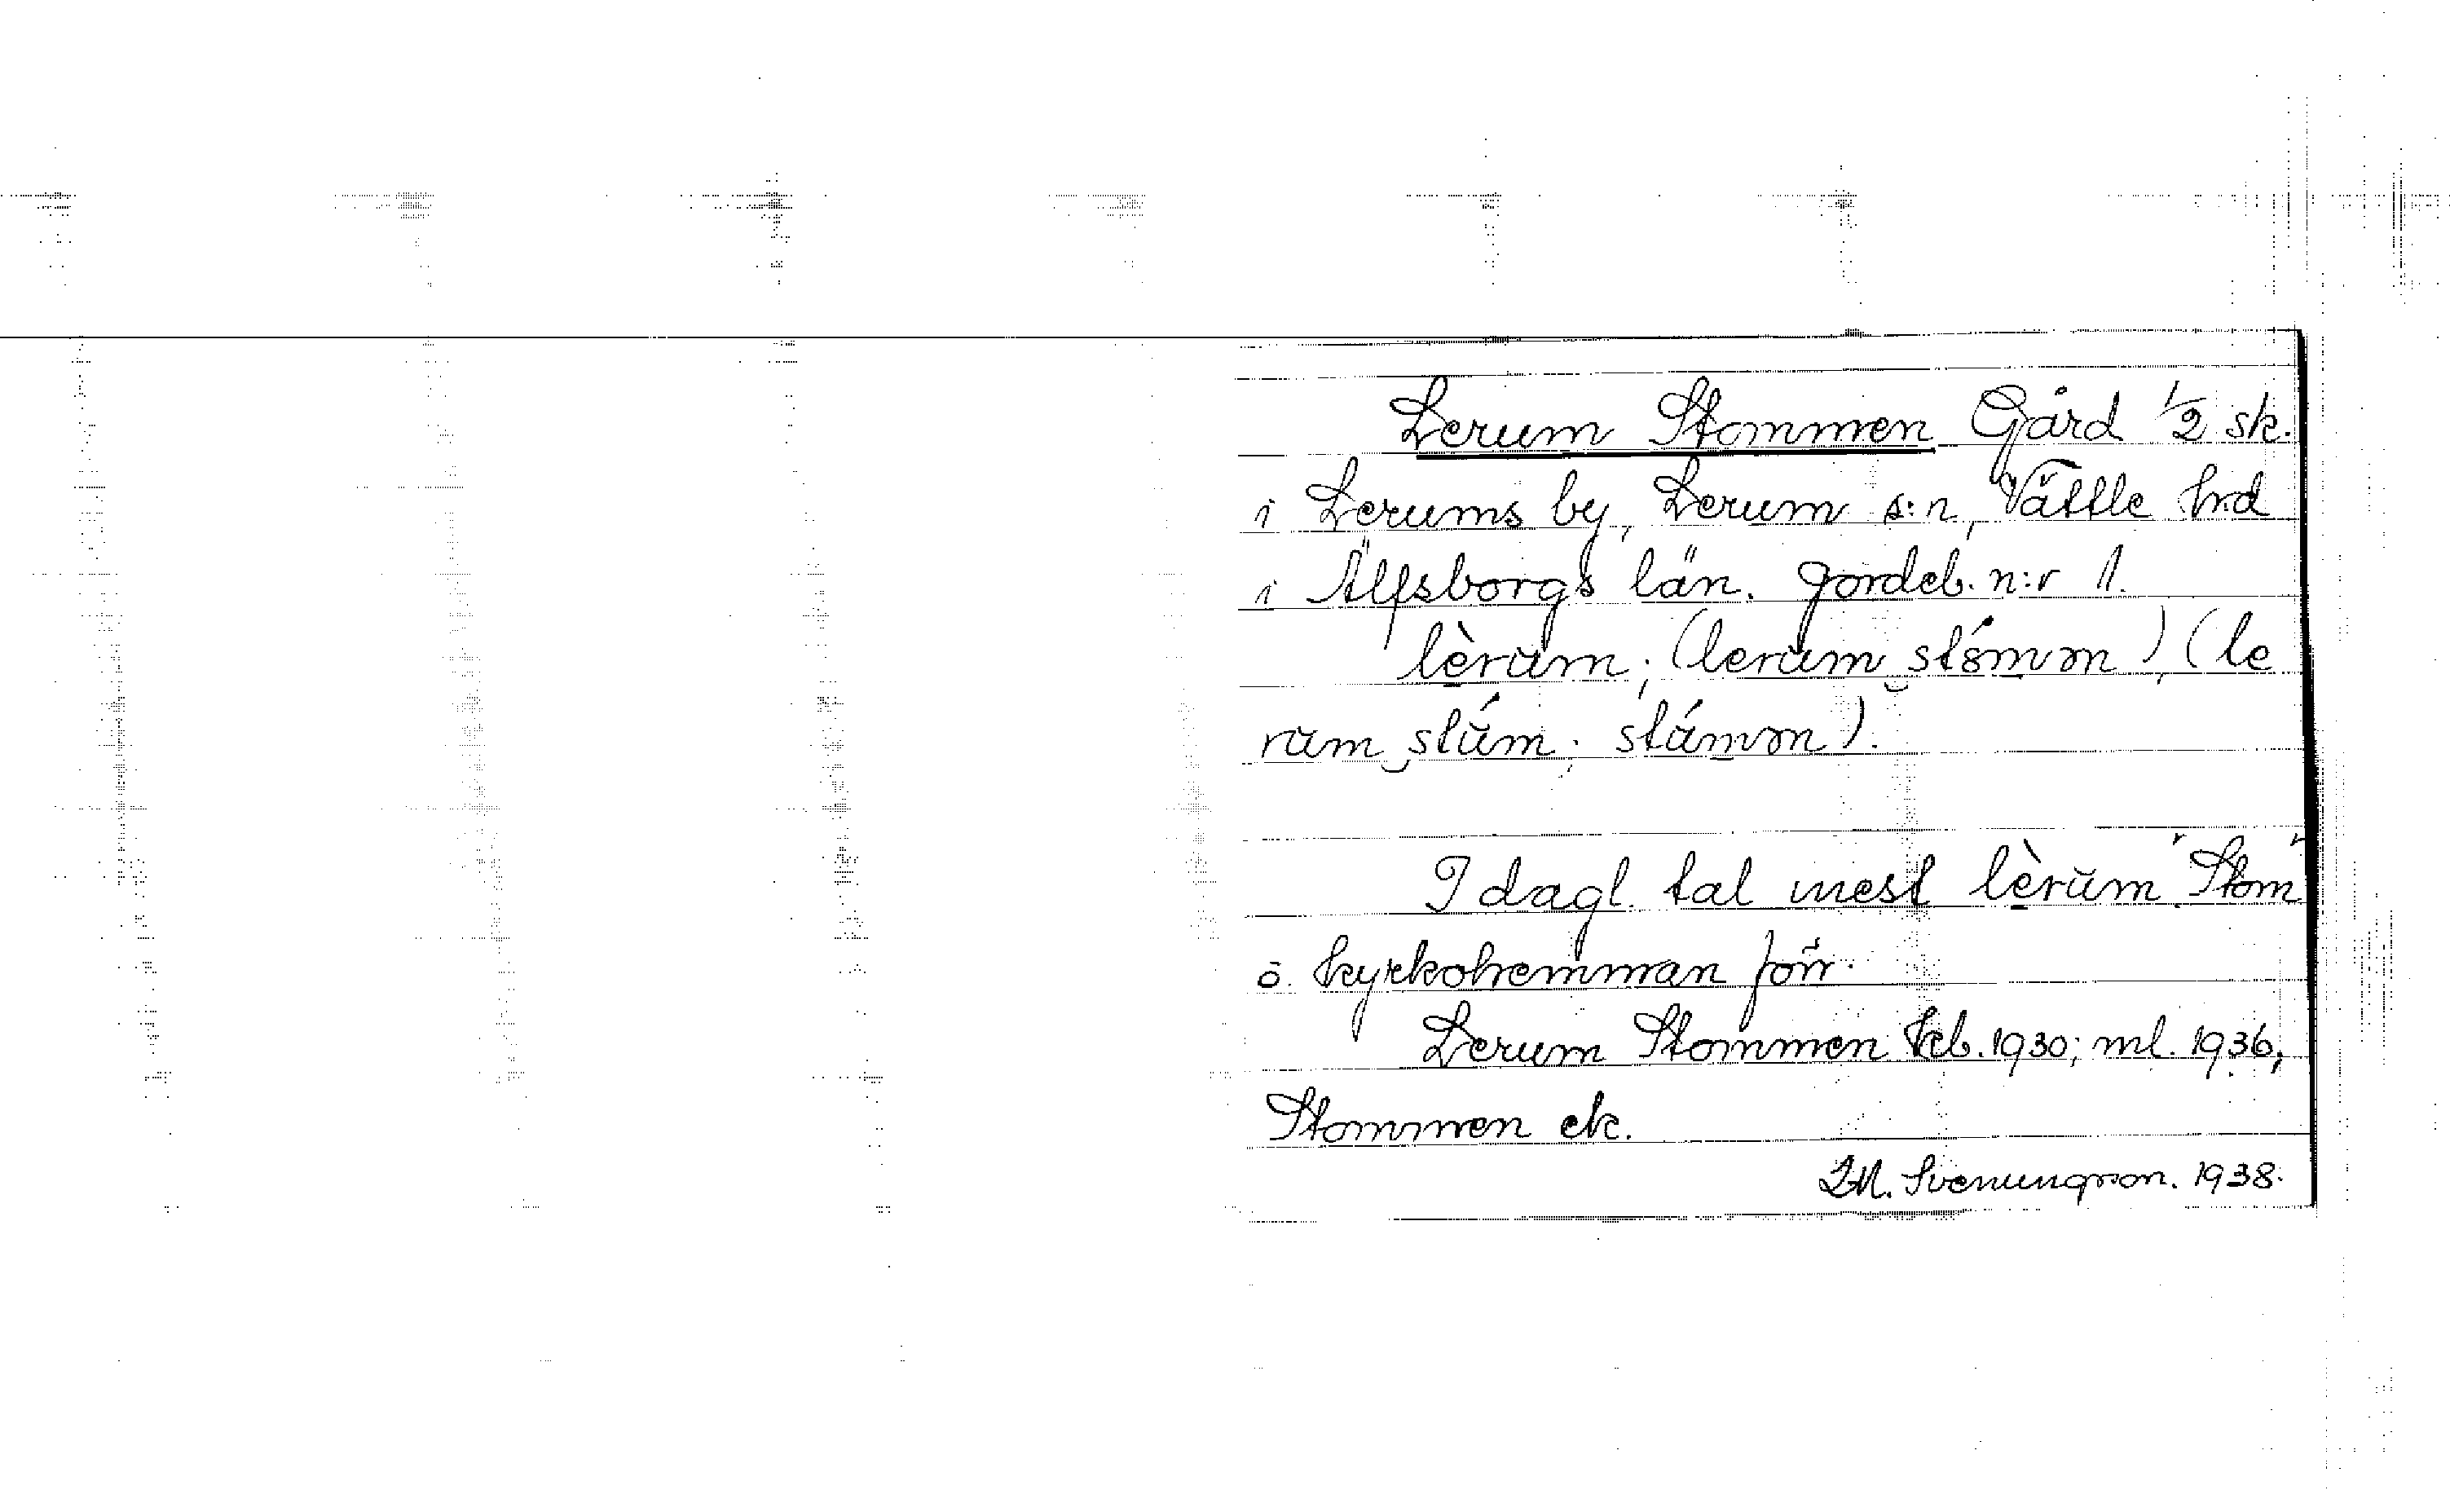 Lerum Stommen Gård 1/2 sk.
i Lerums by, Lerum s:n, Vättle hrd
i Älfsborgs län. Jordeb. n:r 1.
lèrŭm; (lerŭm stómm), (le
rŭm stŭ́m; stŭ́mm).
I dagl. tal mest lèrŭm. "Stom"
o. kyrkohemman förr.
Lerum Stommen kcb. 1930; ml. 1936;
Stommen ek.
Svenungson. 1938.